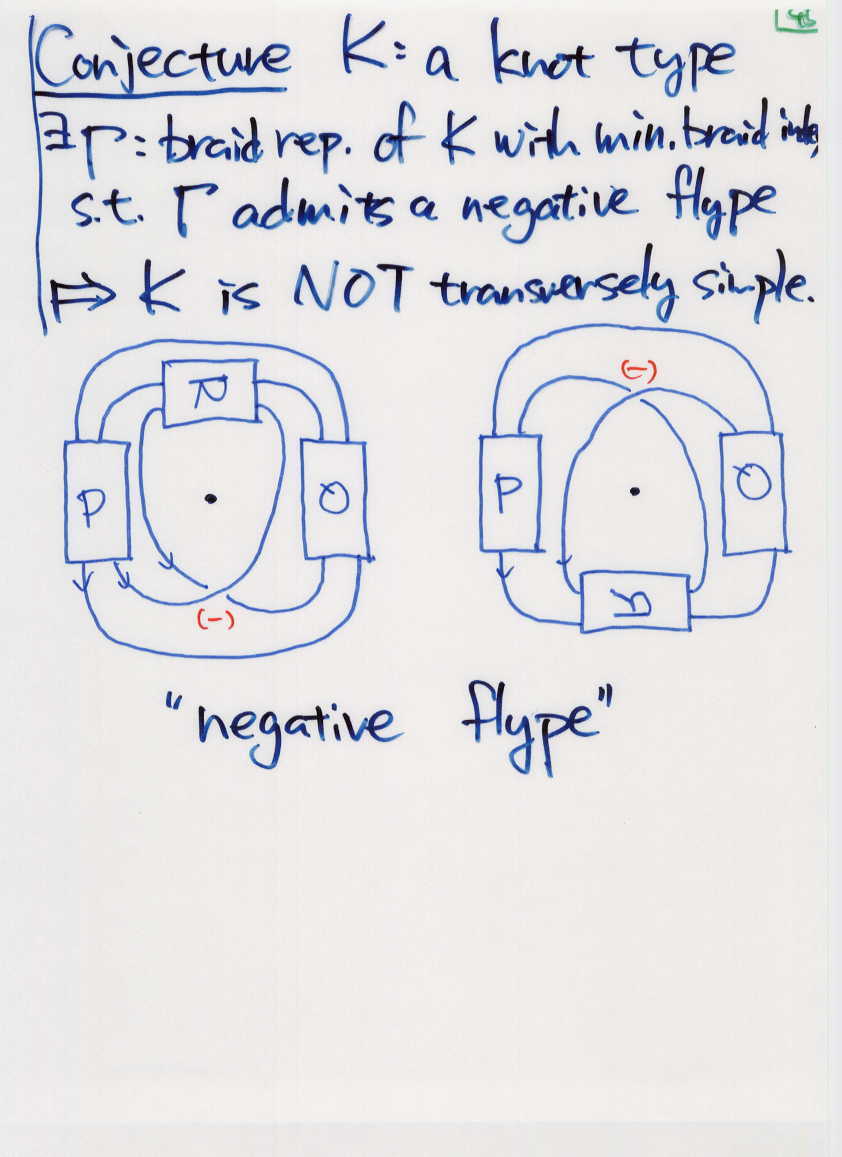 Conjecture K: a knot type
∃Γ: braid rep. of K with min. braid index,
s.t. Γ admits a negative flype
⇒ K is NOT transversely simple.
(-)
P
Q
P
Q
(-)
"negative flype"